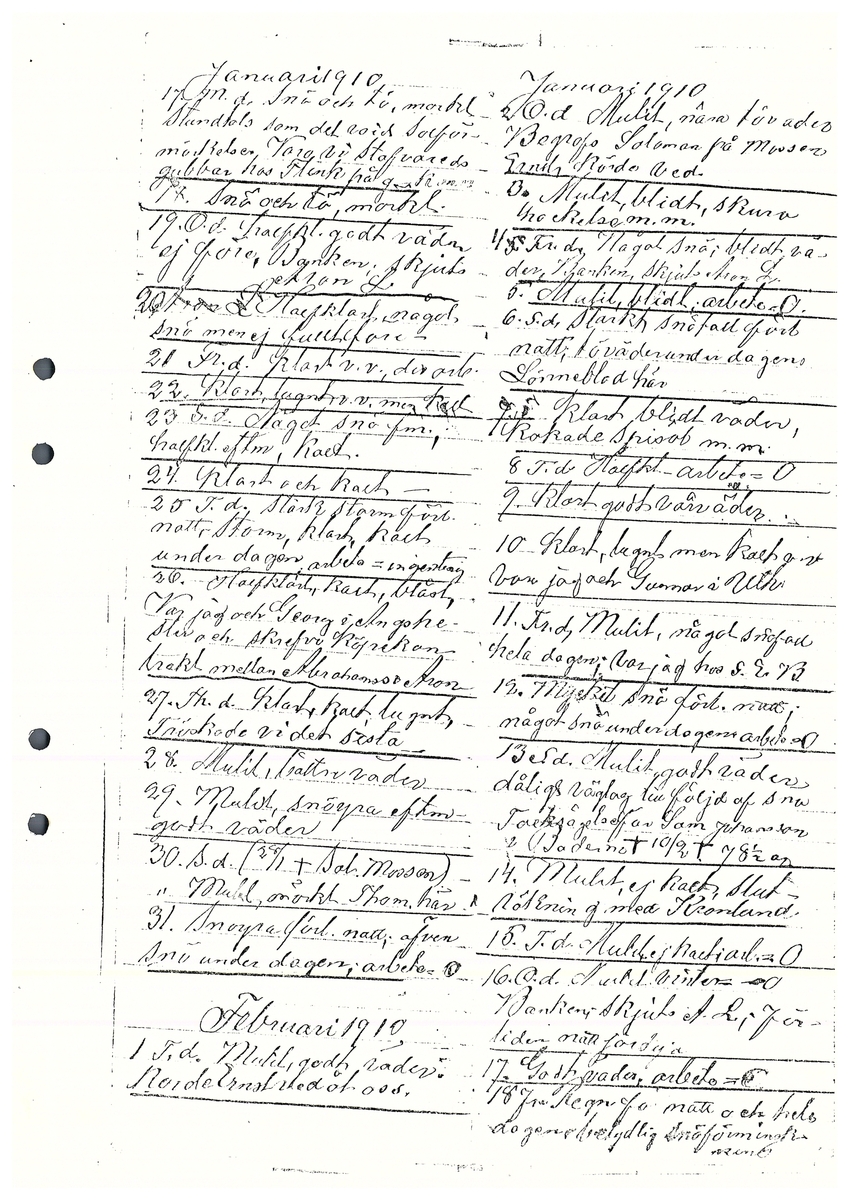 Januari 1910
17. M.d. Snö och tö, mörkt
stundtals som det vore solför-
mörkelse, Voro vi
gubbar hos Flink på
18. Snö och tö, mörkt.
19. O.d. Halfkl. godt väder
ej före, Banken; skjuts
Aron L
20 Halfklart, något
snö men ej fullt före
21 Fr.d. Klart v.v., div arb.
22. Klart, lugnt v.v. men kallt
23 S.d. Något snö fm.,
halfkl. eftm, kallt.
24. Klart och kallt
25 T.d. Stark storm förl.
natt, storm, klart, kallt
under dagen, arbete = ingenting
26. Halfklart, kallt, blåst,
Var jag och Georg i
och skrefvo Köpekon-
trakt mellan Abrahamsson Aron
27. Th.d. Klart, kallt, lugnt,
Tröskade vi det sista
28 Mulit, bättre väder
29. Mulit, snöyra eftm
godt väder
30. S.d. (29/1 + Sol. Mossen)
" Mulit, mörkt Thom. här
31. Snöyra förl. natt; äfven
snö under dagen; arbete = 0
Februari 1910
1 T.d. Mulit, godt väder.
Körde Ernst ved åt oss.
Januari 1910
2 O.d Mulit, nära töväder
Begrofs Solomon på Mossen
Ernst Körde ved.
3. Mulit, blidt, skura
m.m.
4 Fr.d. Något snö; blidt vä-
der, Banken, skjuts Aron L.
5. Mulit, blidt; arbete = 0.
6. S.d. Starkt snöfall förl
natt; töväder under dagen
här
7. Klart blidt väder,
Kokade m.m.
8 T.d. Halfkl. arbete = 0
9. Klart godt vårväder.
10 Klart, lugnt men kallt
var jag och Gunnar i
11. Fr.d. Mulit, något snöfall
hela dagen; var jag hos S. E. B
12. Mycket snö förl. natt;
något snö under dagen arbete = 0
13 S.d. Mulit, godt väder
dåligt väglag till följd af snö
Tacksägelse för Sam Johansson
i Boderne + 10/2 + 78 1/2 år
14. Mulit, ej kallt, Slut-
räkning med Kronlund
15. T.d. Mulit, ej kallt; arb. = 0
16. O.d. Mulit vinter = 0
Banken; skjuts A. L.; För-
liden natt
17. Godt väder, arbete = 0
18 Fr. Regn fö natt och hela
dagen obetydlig snöförminsk-
ning